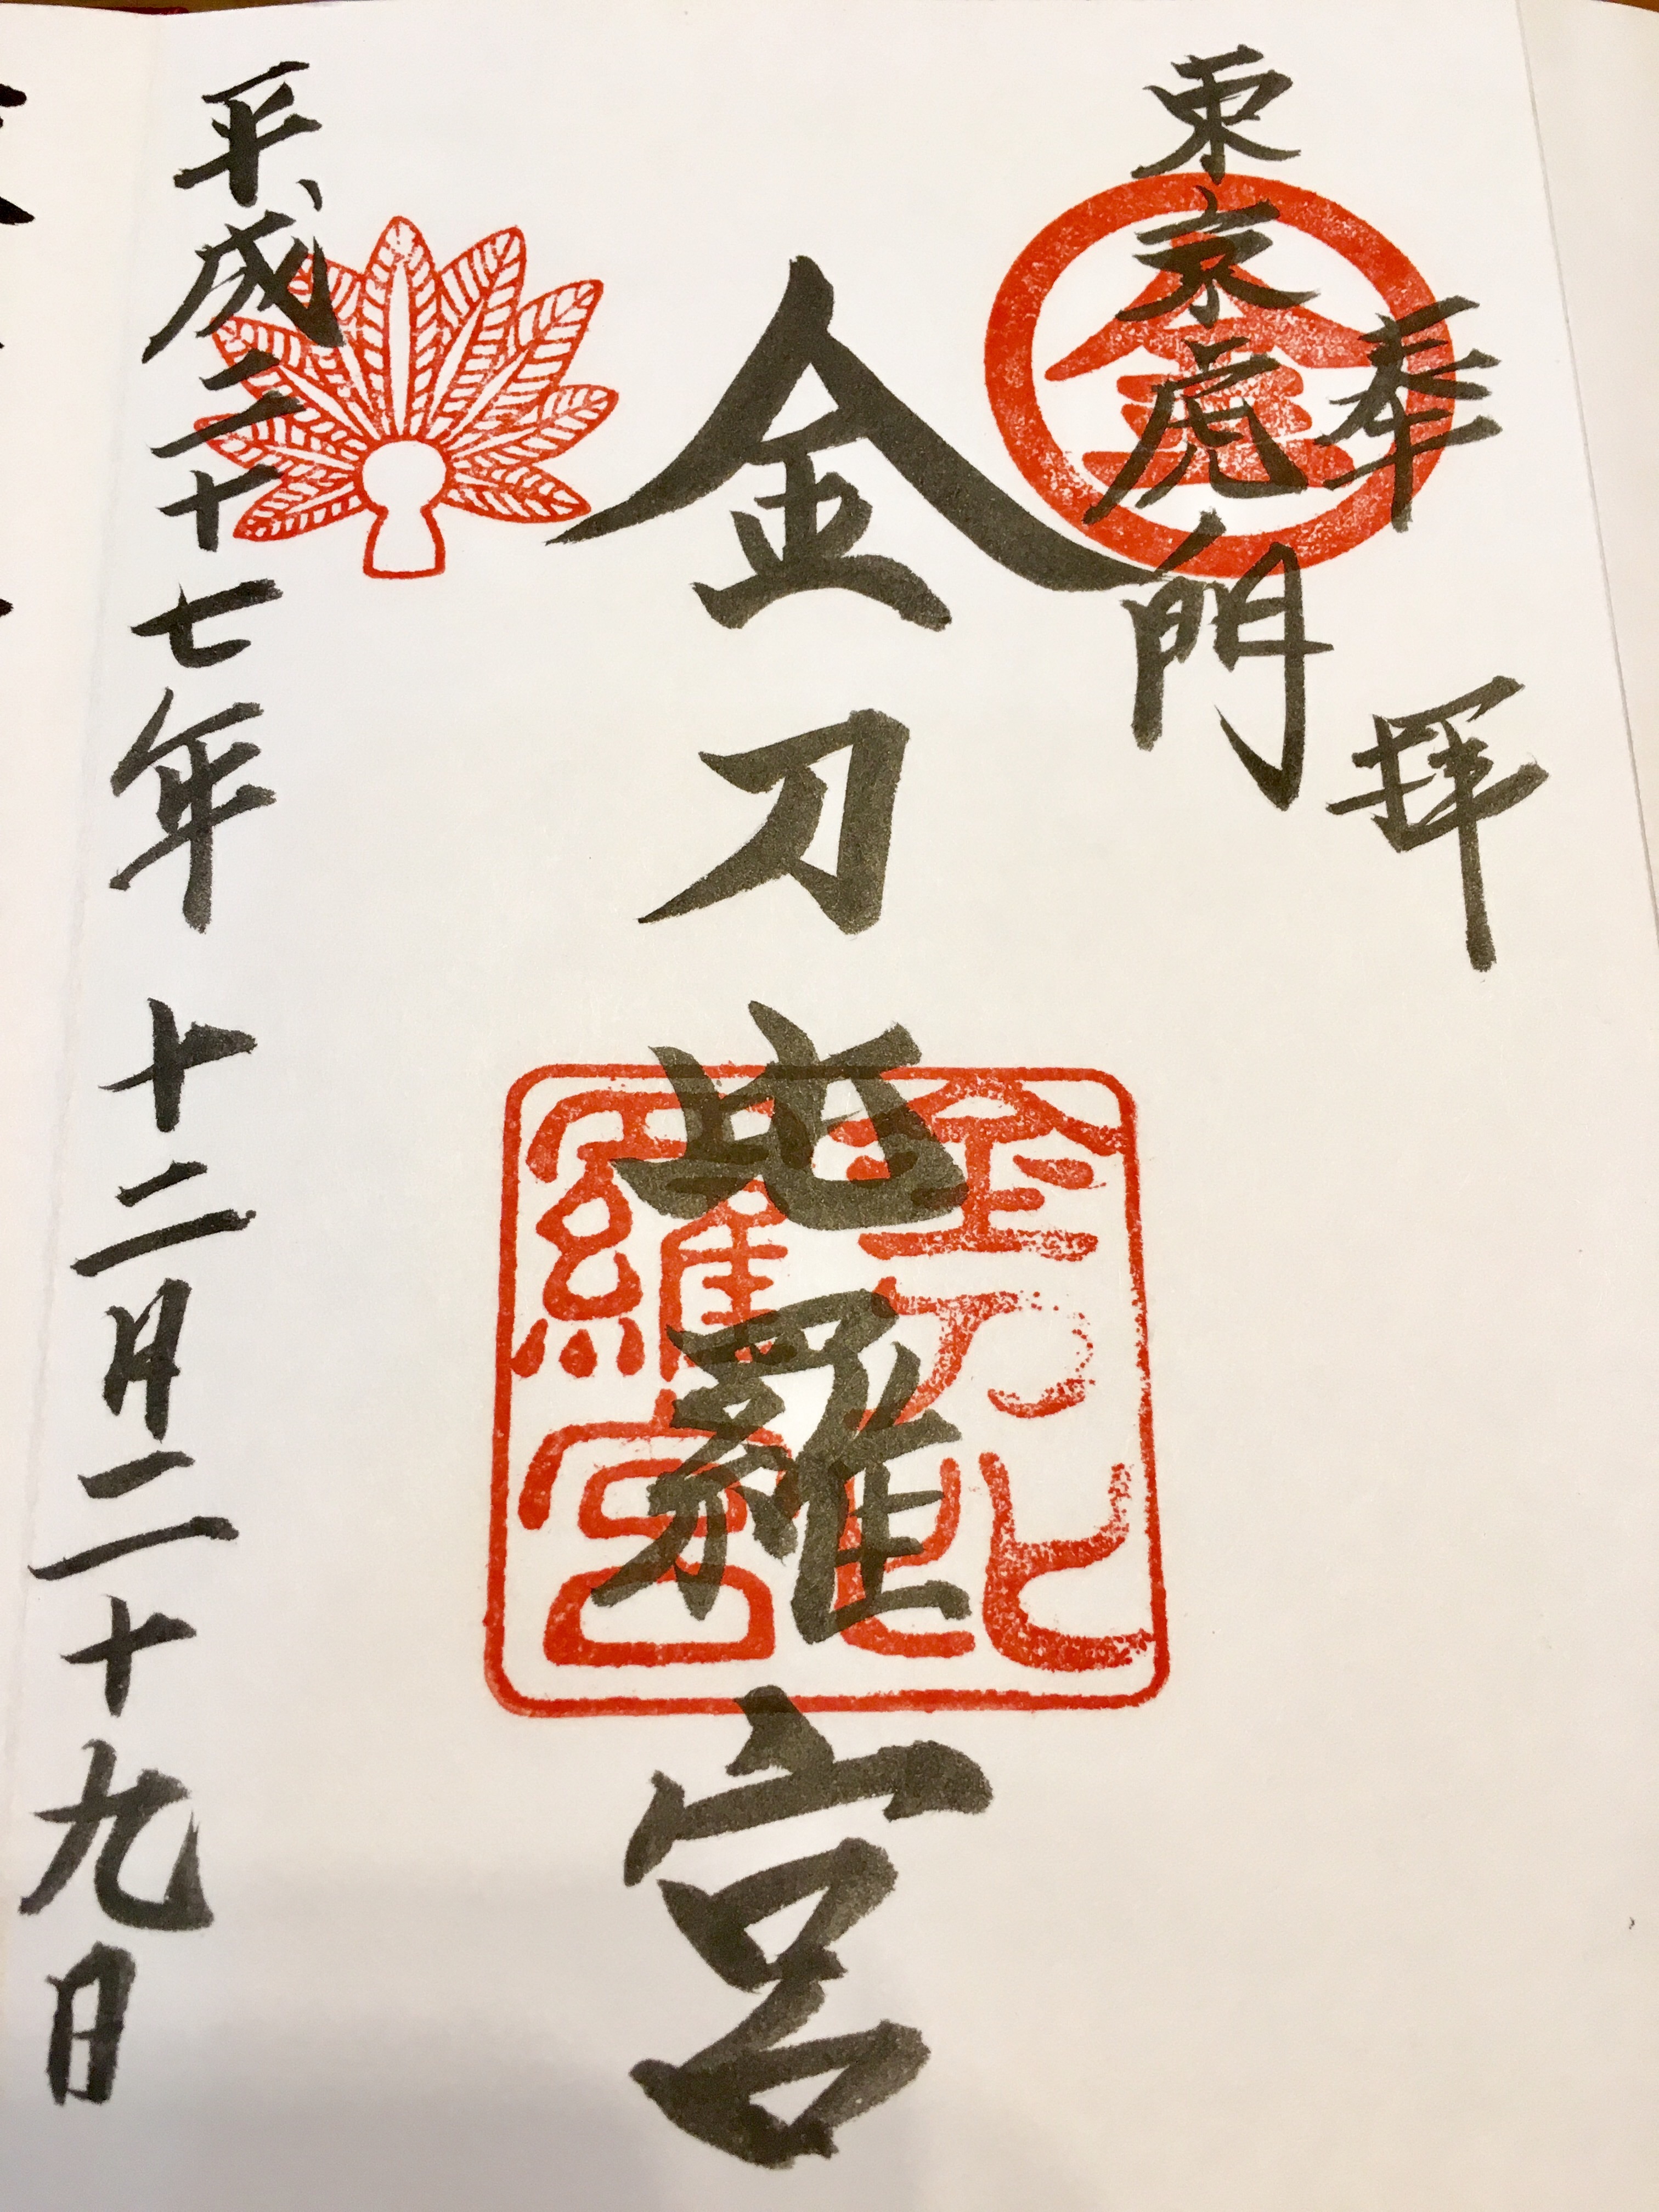 奉拝
東京虎ノ門
金刀比羅宮
平成二十七年十二月二十九日
金
金刀比
羅宮